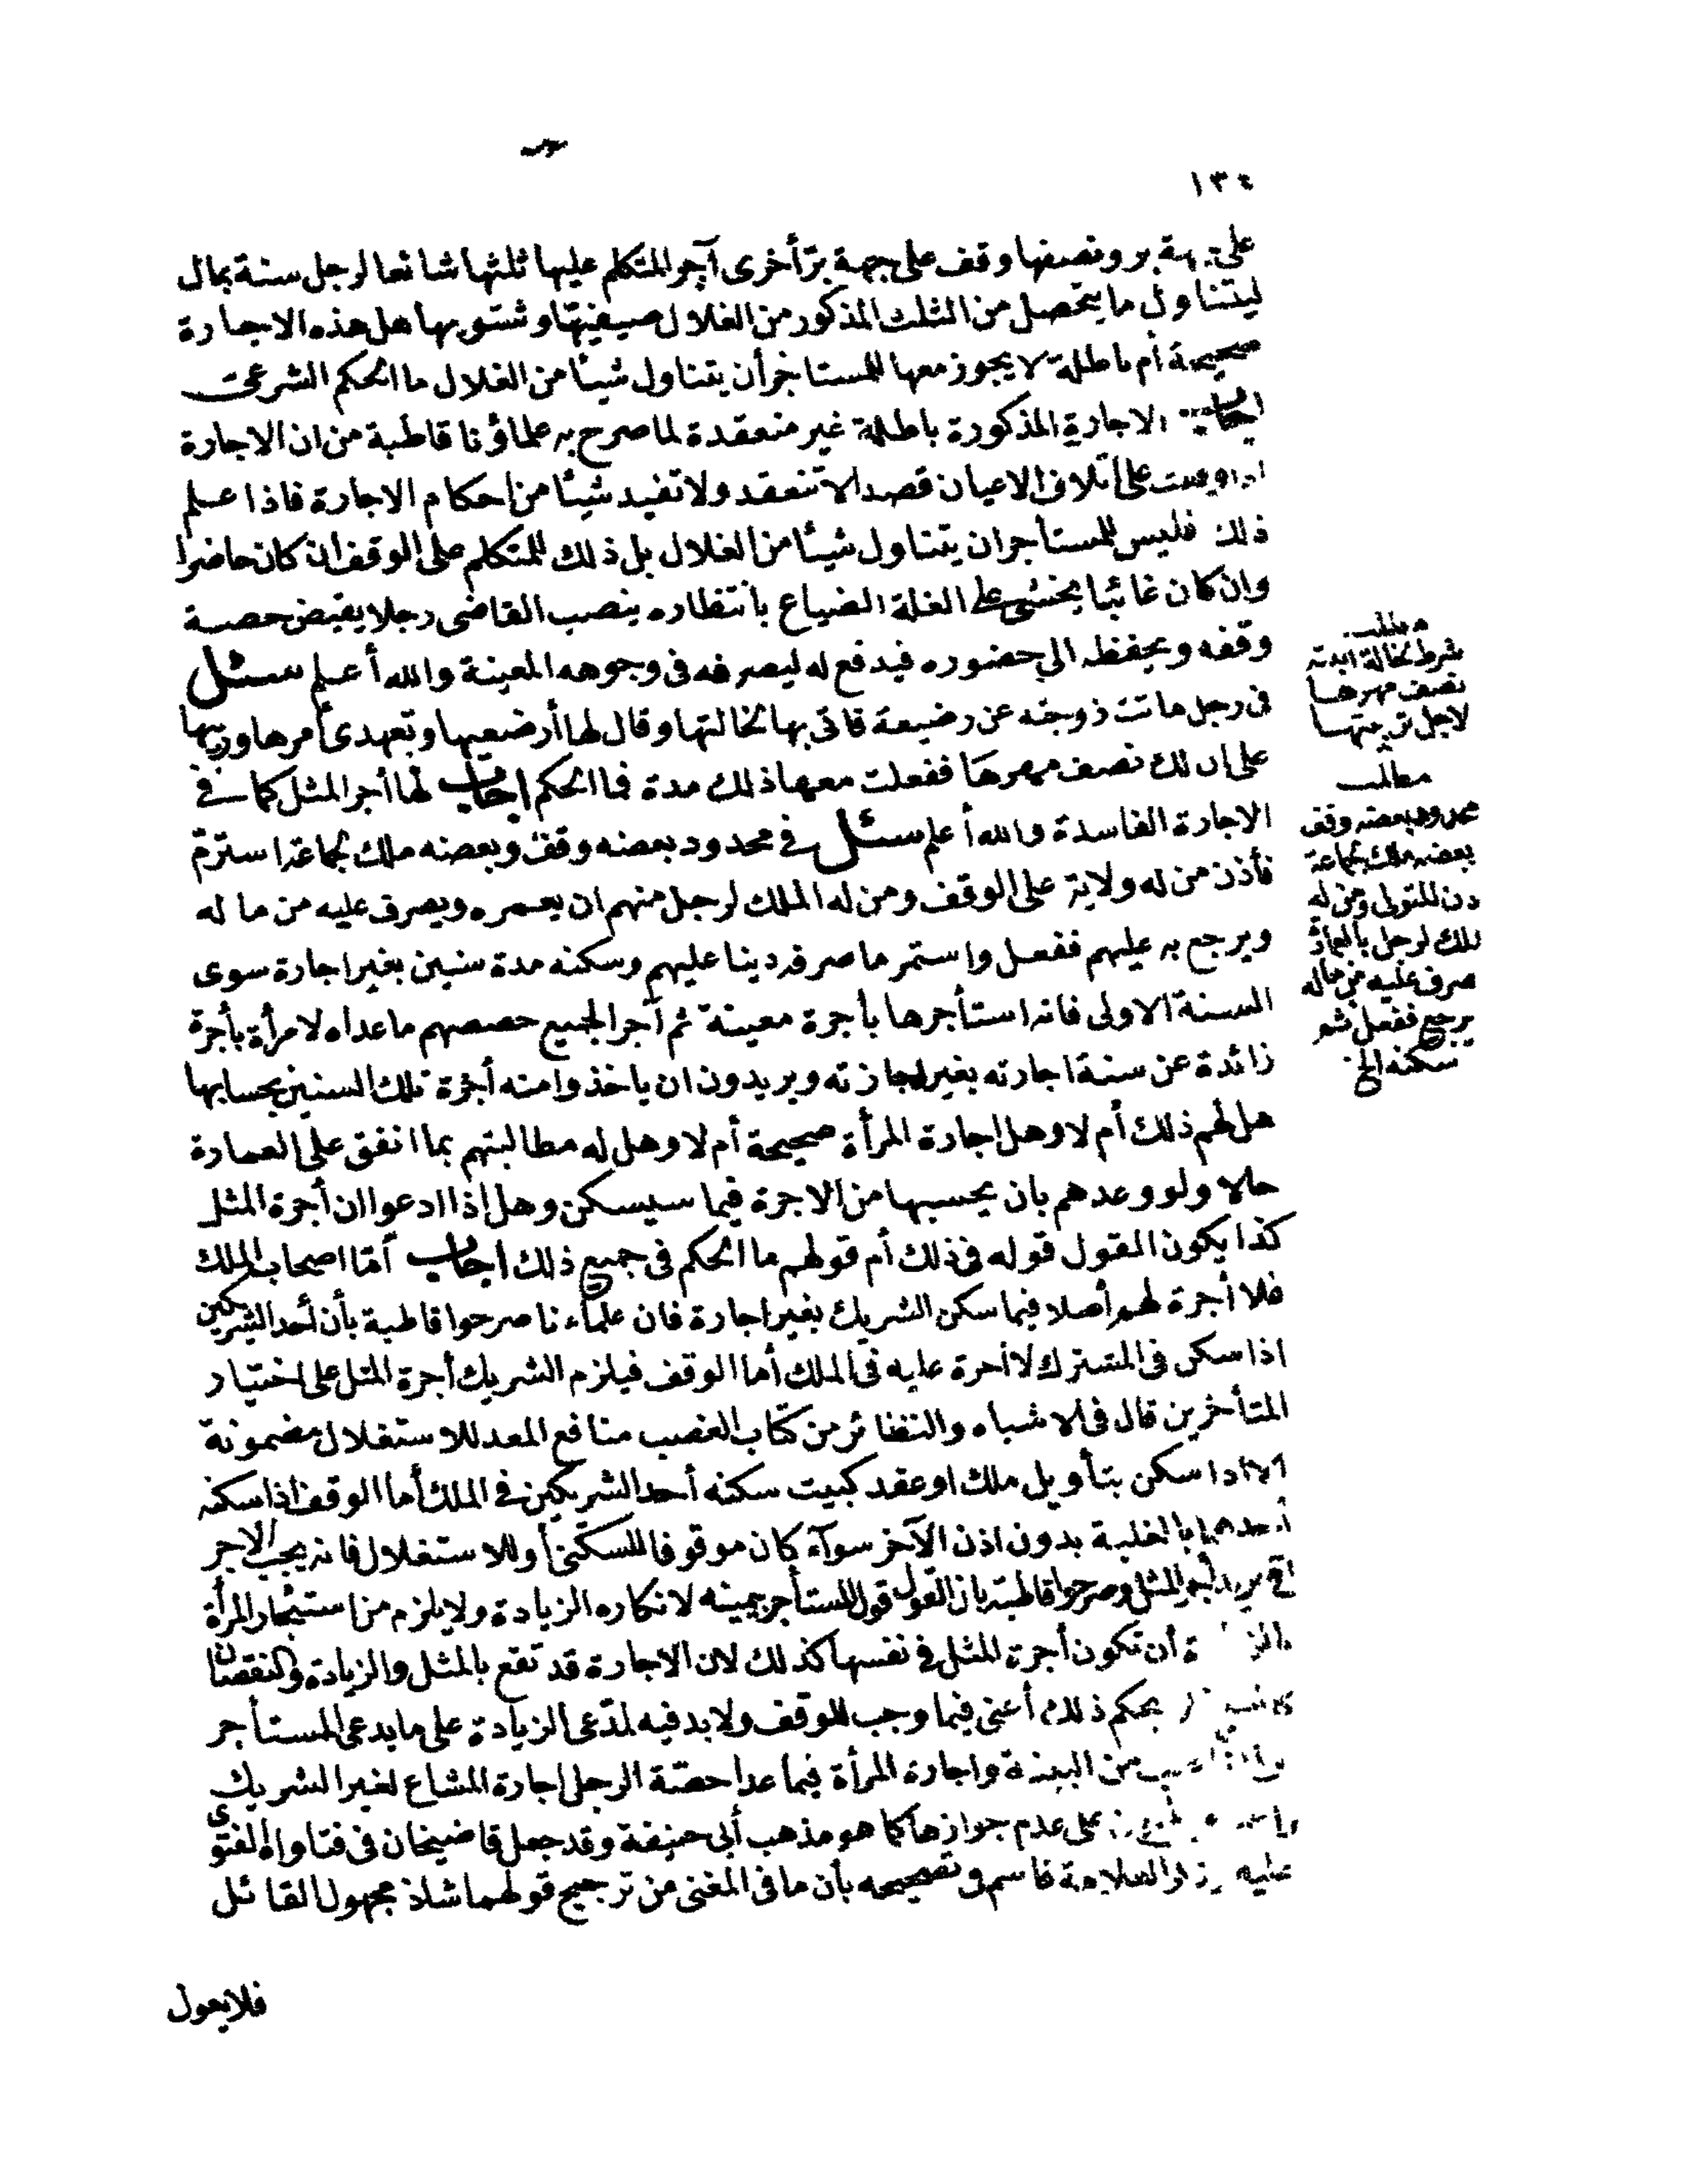 ١٣٤
على جهة بر ونصفها وقف على جهة برّ أخرى آجر المتكلم عليها ثلثها شائعا لرجل سنة بمال
ليتناول ما يتحصل من الثلث المذكور من الغلال صيفيتها وشتويها هل هذه الاجارة
صحيحة أم باطلة لا يجوز معها للمستاجر أن يتناول شيئا من الغلال ما الحكم الشرعى
اجاب الاجارة المذكورة باطلة غير منعقدة لما صرح به علماؤنا قاطبة من ان الاجارة
اذا وقعت على اتلاف الاعيان قصدا لا تنعقد ولا تفيد شيئا من احكام الاجارة فاذا علم
ذلك فليس للمستاجر ان يتناول شيئا من الغلال بل ذلك للمتكلم على الوقف ان كان حاضرا
وان كان غائبا يخشى على الغلة الضياع بانتظاره ينصب القاضى رجلا يقبض حصة
وقفه ويحفظه الى حضوره فيدفع له ليصرفه فى وجوهه المعينة والله أعلم سئل
فى رجل ماتت زوجته عن رضيعة فاتى بها لخالتها وقال لها أرضعيها وتعهدى أمرها وربيها
على ان لك نصف مهرها ففعلت معها ذلك مدة فما الحكم اجاب لها أجر المثل كما فى
الاجارة الفاسدة والله أعلم سئل فى محدود بعضه وقف وبعضه ملك لجماعة استرمّ
فأذن من له ولاية على الوقف ومن له الملك لرجل منهم ان يعمره ويصرف عليه من ماله
ويرجع به عليهم ففعل واستمر ما صرفه دينا عليهم وسكنه مدة سنين بغير اجارة سوى
السنة الاولى فانه استأجرها بأجرة معينة ثم آجر الجميع حصصهم ما عداه لامرأة بأجرة
زائدة عن سنة اجارته بغير اجازته ويريدون ان ياخذوا منه أجرة تلك السنين بحسابها
هل لهم ذلك أم لا وهل اجارة المرأة صحيحة أم لا وهل له مطالبتهم بما انفق على العمارة
حالا ولو وعدهم بان يحسبها من الاجرة فيما سيسكن وهل إذا ادعوا ان أجرة المثل
كذا يكون المقول قوله فى ذلك أم قولهم ما الحكم فى جميع ذلك اجاب أمّا اصحاب الملك
فلا أجرة لهم أصلا فيما سكن الشريك بغير اجارة فان علماءنا صرحوا قاطبة بأن أحد الشريكين
اذا سكن فى المشترك لا أجرة عليه فى الملك أما الوقف فيلزم الشريك أجرة المثل على اختيار
المتأخرين قال فى الاشباه والنظائر من كتاب الغصب منافع المعد للاستغلال مضمونة
الا اذا سكن بتأويل ملك او عقد كبيت سكنه أحد الشريكين فى الملك أما الوقف اذا سكنه
أحدهما بالغلبة بدون اذن الآخر سوآء كان موقوفا للسكنى أو للاستغلال فانه يجب الاجر
اجر المثل وصرحوا قاطبة بان القول قول المستأجر بيمينه لانكاره الزيادة ولا يلزم من استئجار المرأة
أن تكون أجرة المثل فى نفسها كذلك لان الاجارة قد تقع بالمثل والزيادة والنقصان
بحكم ذلك أعنى فيما وجب للوقف ولا بد فيه لمدّعى الزيادة على ما يدعى المستأجر
من البينة واجارة المرأة فيما عدا حصّة الرجل اجارة المشاع لغير الشريك
على عدم جوازها كما هو مذهب أبى حنيفة وقد جعل قاضيخان فى فتاواه الفتوى
عليه العلامة قاسم فى تصحيحه بأن ما فى المغنى من ترجيح قولهما شاذ مجهول القائل
فلا يعول
مطلب
شرط لخالة ابنته
نصف مهرها
لاجل تربيتها
مطلب
محدود بعضه وقف
بعضه ملك لجماعة
ذن المتولى ومن له
لملك لرجل بالعمارة
صرف عليه من ماله
يرجع ففعل ثم
سكنه الخ